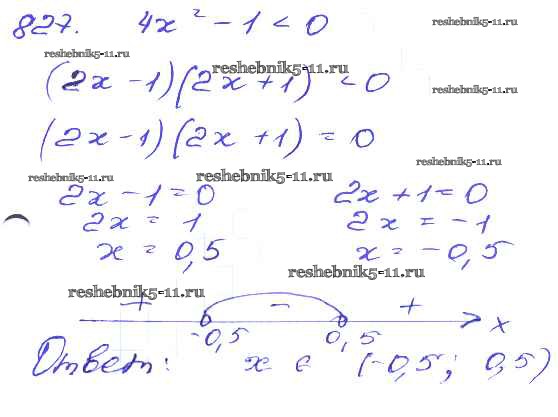 827. 4x² - 1 < 0
reshebnik5-11.ru
reshebnik5-11.ru
(2x - 1)(2x + 1) < 0
reshebnik5-11.ru
reshebnik5-11.ru
(2x - 1)(2x + 1) = 0
reshebnik5-11.ru
reshebnik5-11.ru
reshebnik5-11.ru
2x - 1 = 0 2x + 1 = 0
2x = 1 2x = -1
x = 0,5 x = -0,5
reshebnik5-11.ru
reshebnik5-11.ru
+ - +
-0,5 0,5 x
Ответ: x ∈ (-0,5; 0,5)